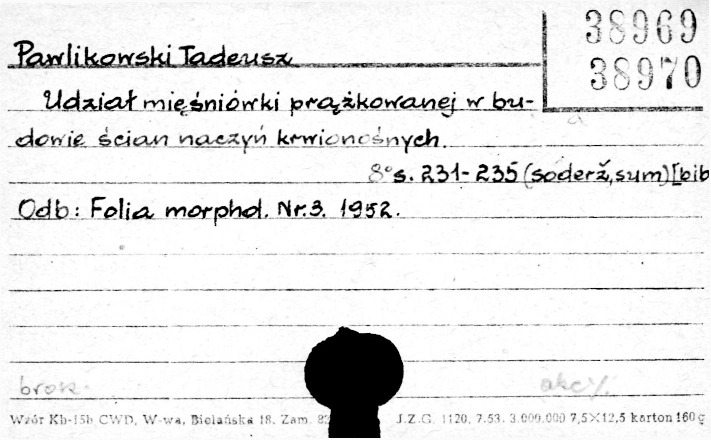 38969
38970
Pawlikowski Tadeusz
Udział mięśniówki prążkowanej w bu-
dowie ścian naczyń krwionośnych.
8° s. 231-235 (soderž, sum) [bib
Odb: Folia morphol. Nr. 3. 1952.
brosz. akc.
Wzór Kb-15b CWD, W-wa, Bielańska 18. Zam. J.Z.G. 1120. 7.53. 3.000.000 7,5×12,5 karton 160 g